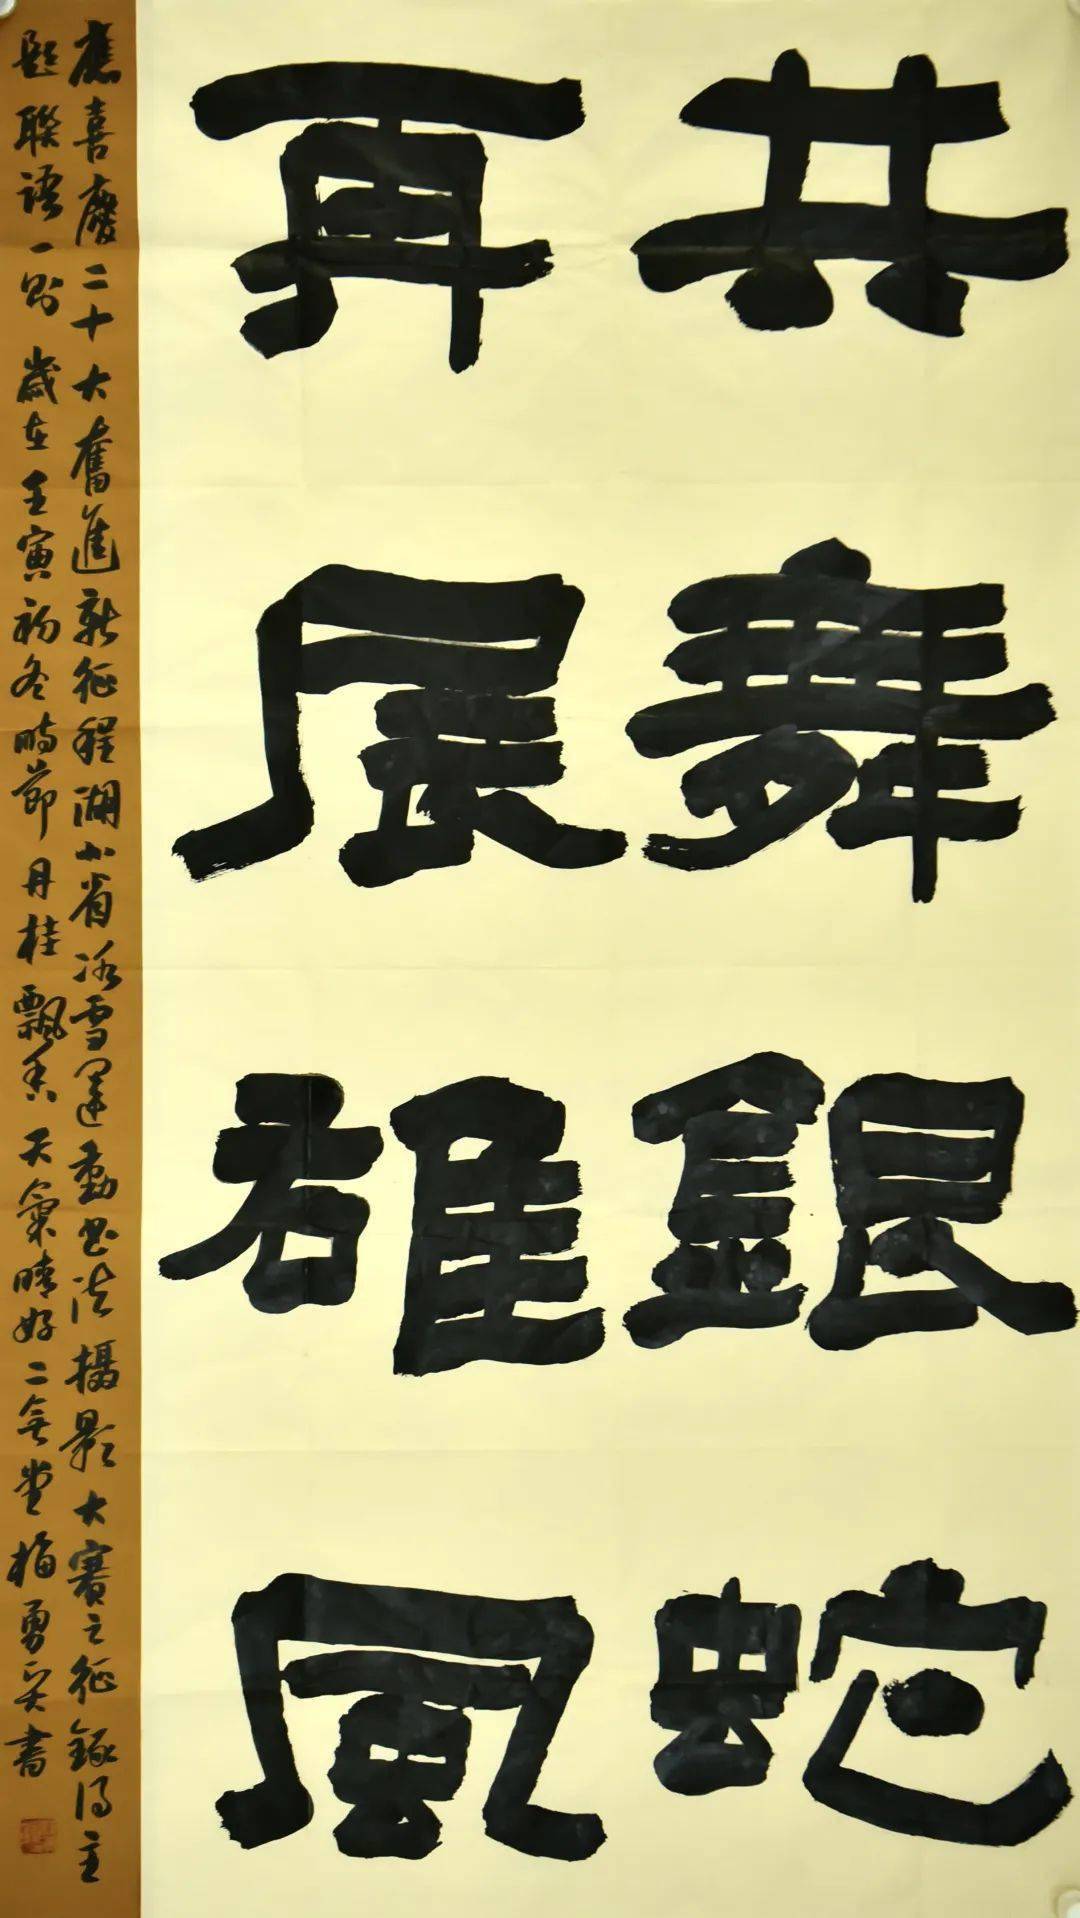 共舞銀蛇
再展雄風
應喜慶二十大奮進新征程湖北省冰雪運動書法攝影大賽之征錄得主
題聯語一則歲在壬寅初冬時節丹桂飄香天氣晴好二
書